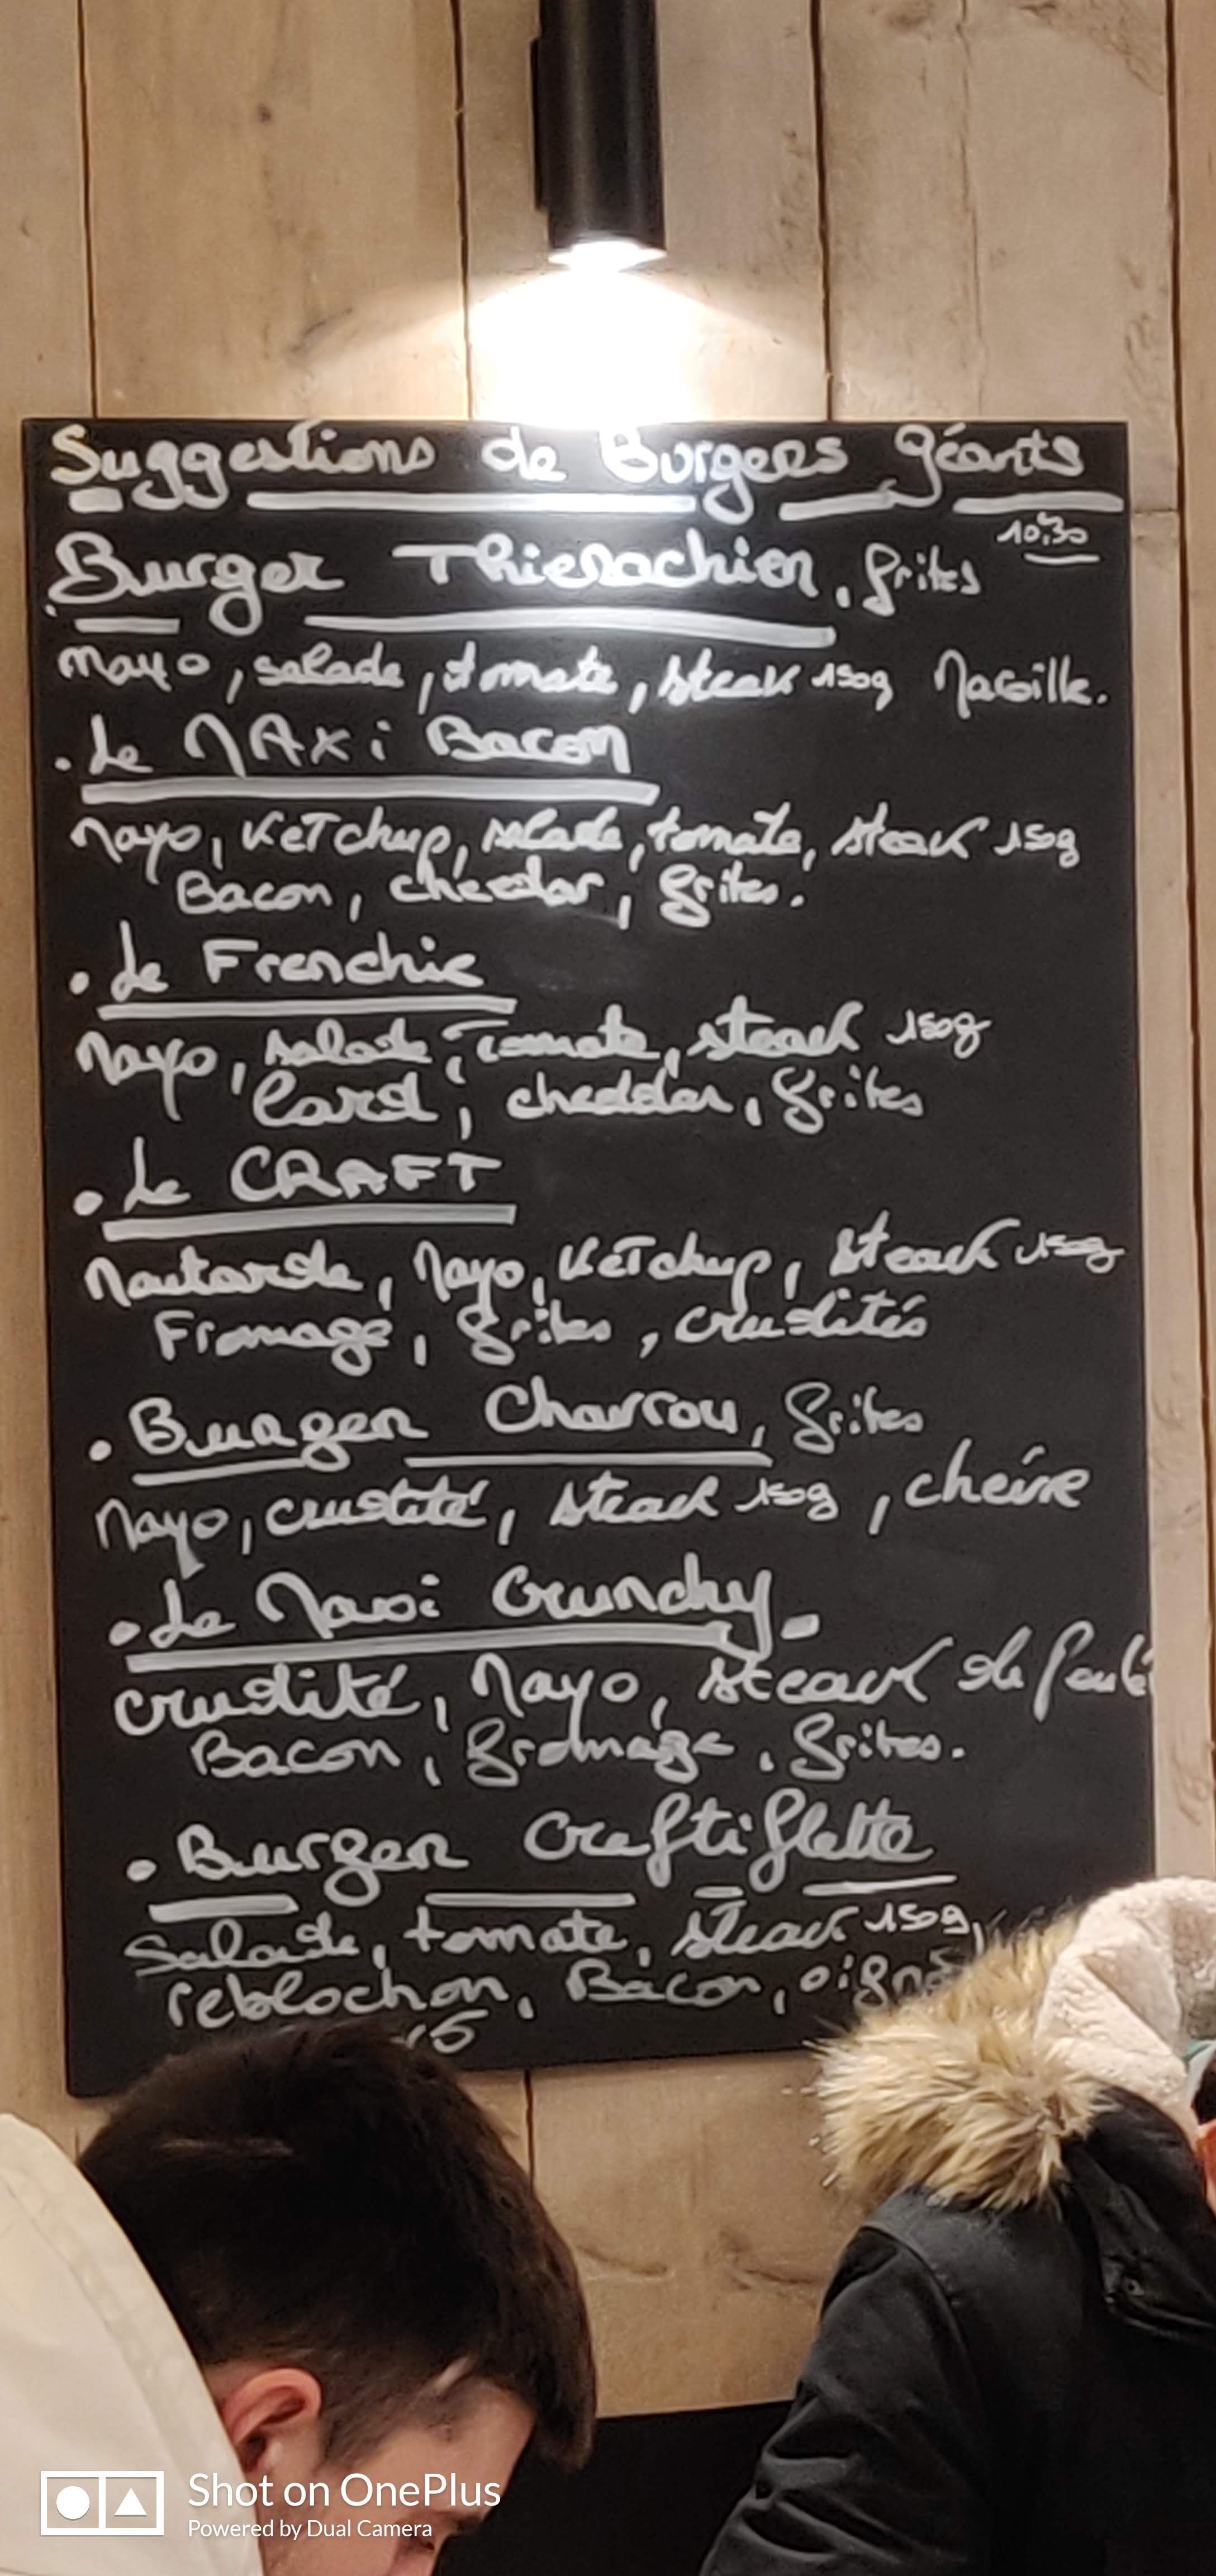 Suggestions de Burgers géants
10,30
Burger Thierachien, frites
Mayo, salade, tomate, steak 150g Maroille.
. Le MAXi Bacon
Mayo, Ketchup, salade, tomate, steak 150g
Bacon, cheedar, frites.
. Le Frenchie
Mayo, salade, Tomate, steack 150g
lard, cheddar, frites
. Le CRAFT
Moutarde, Mayo, Ketchup, steack 150g
Fromage, frites, crudités
. Burger Charrou, frites
Mayo, crudité, steack 150g, chévre
. Le Maxi Crunchy.
crudité, Mayo, steack de
Bacon, fromage, frites.
. Burger Craftiflette
Salade, tomate, steack 150g,
reblochon, Bacon,
Shot on OnePlus
Powered by Dual Camera